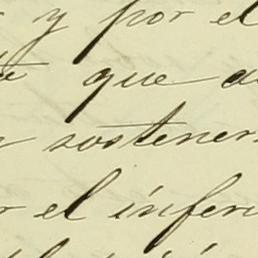 y por el
que
sostener
el inferi